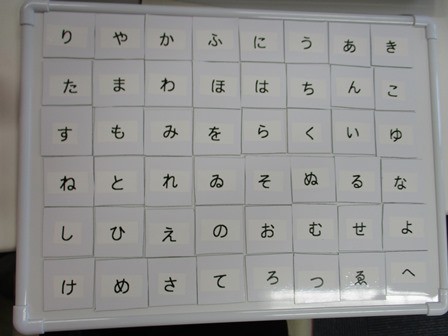 り や か ふ に う あ き
た ま わ ほ は ち ん こ
す も み を ら く い ゆ
ね と れ ゐ そ ぬ る な
し ひ え の お む せ よ
け め さ て ろ つ ゑ へ